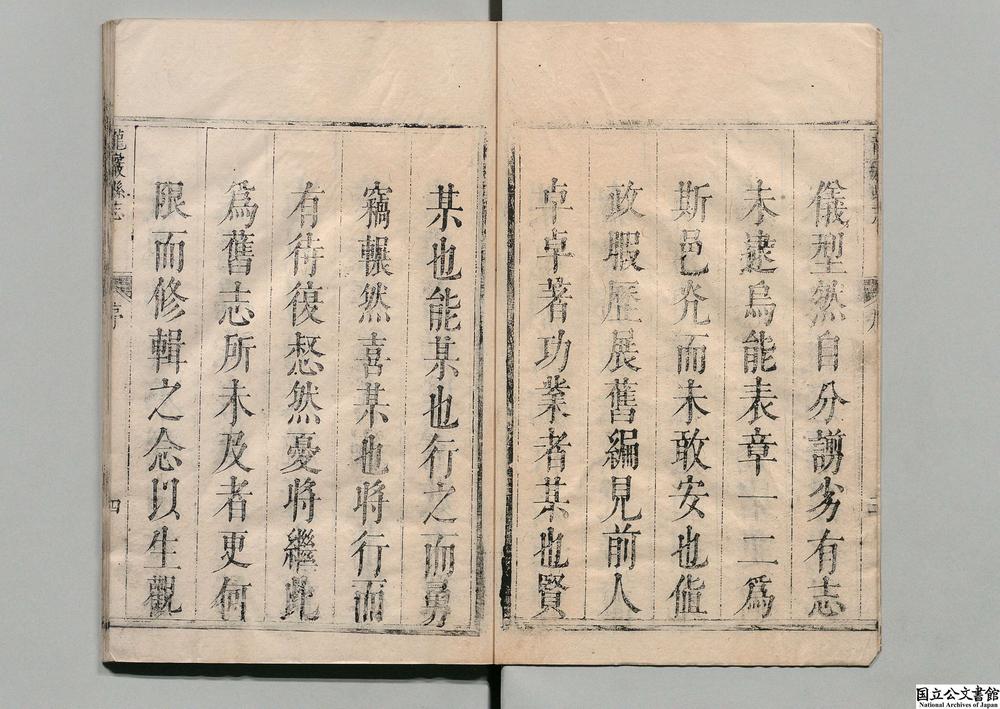 儀型然自分謭劣有志
未逮烏能表章一二為
斯邑光而未敢安也值
政暇歷展舊編見前人
卓卓著功業者某也賢
某也能某也行之而勇
竊囅然喜某也將行而
有待復愁然憂將繼此
爲舊志所未及者更何
限而修輯之念以生觀
龍巖縣志
序
四
国立公文書館
National Archives of Japan